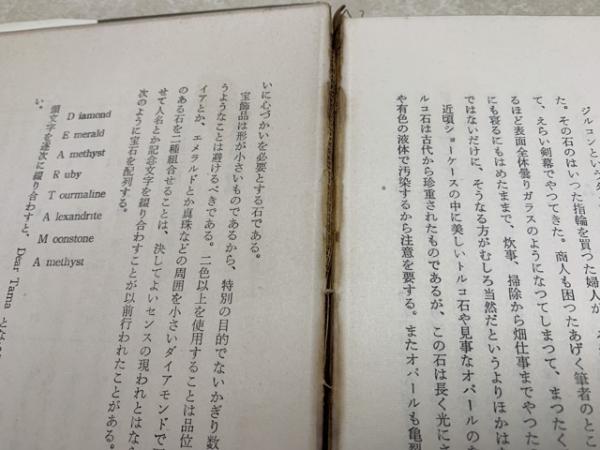 ジルコンという
た。その石のはいつた指輪を買つた婦人が
て、えらい剣幕でやつてきた。商人も困つたあげく筆者のとこ
るほど表面全体曇りガラスのようになつてしまつて、まつたく
にも寝るにもはめたままで、炊事、掃除から畑仕事までやつた
ではないだけに、そうなる方がむしろ当然だというよりほかは
近頃ショーケースの中に美しいトルコ石や見事なオパールの
ルコ石は古代から珍重されたものであるが、この石は長く光にさ
や有色の液体で汚染するから注意を要する。またオパールも亀裂
いに心づかいを必要とする石である。
宝飾品は形が小さいものであるから、特別の目的でないかぎり数
うようなことは避けるべきである。二色以上を使用することは品位
イアとか、エメラルドとか真珠などの周囲を小さいダイアモンドで
のある石を二種組合せることは、決してよいセンスの現われとはな
せて人名とか記念文字を綴り合わすことが以前行われたことがある。
次のように宝石を配列する。
Diamond
Emerald
Amethyst
Ruby
Tourmaline
Alexandrite
Moonstone
Amethyst
頭文字を逐次に綴り合わすと、Dear Tama とな
い。